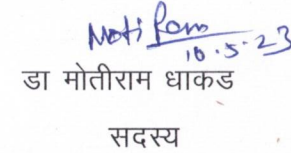 Moti Ram
10.5.23
डा मोतीराम धाकड
सदस्य